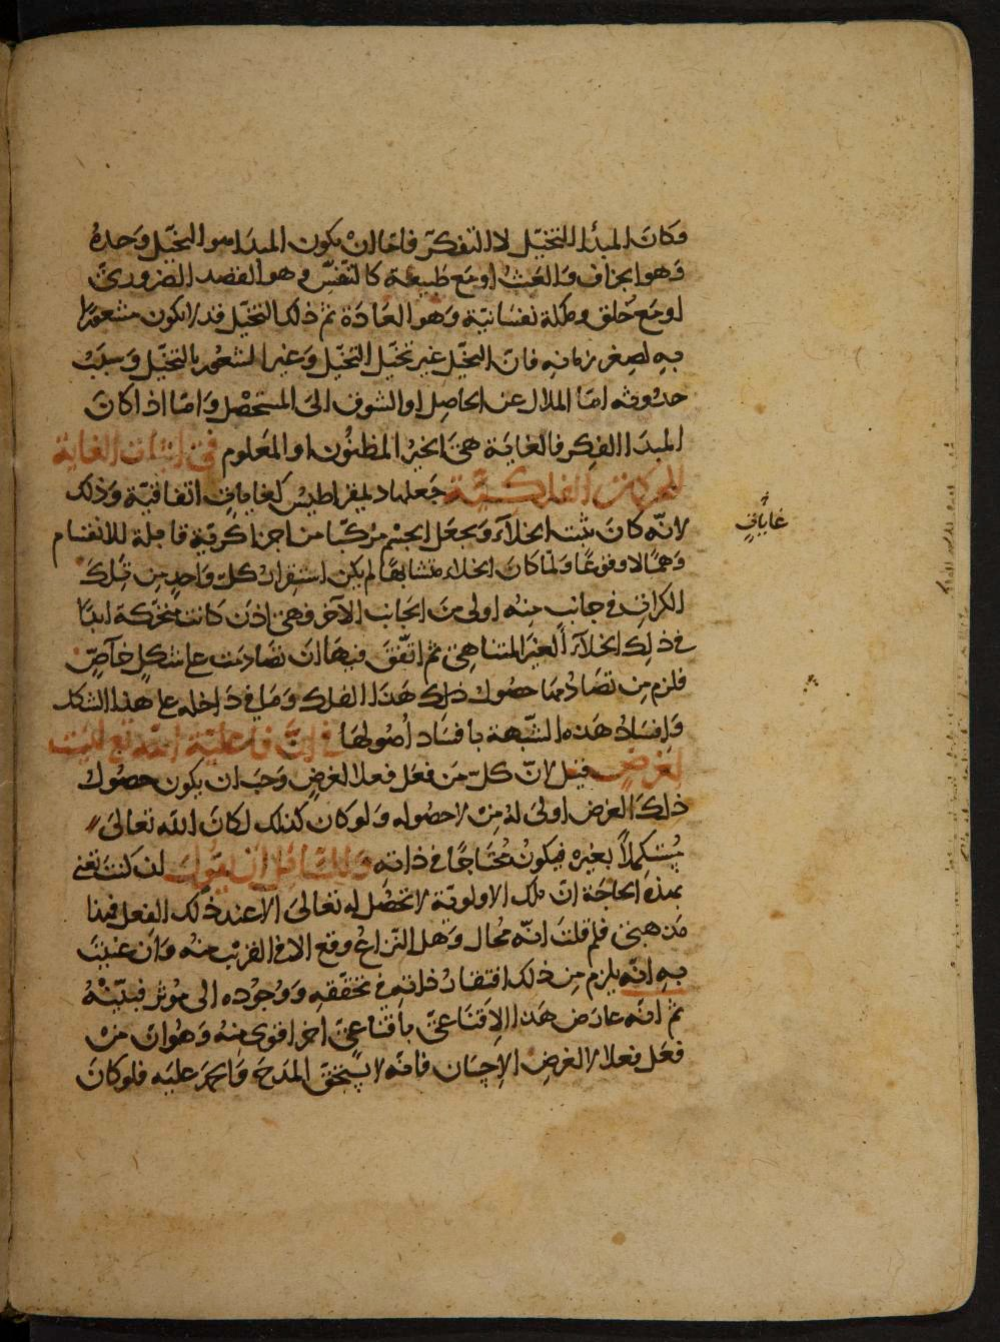 وكان المبدأ التخيل لا التفكر فاما ان يكون المبدا هو التخيل وحده
وهو الجزاف والعبث او مع طبيعة كالتنفس وهو القصد الضروري
او مع خلق وملكة نفسانية وهو العادة ثم ذلك التخيل قد لا يكون مشعورا
به لصغر زمانه فان التخيل غير تخيل التخيل وغير الشعور بالتخيل وسبب
حدوثه اما الملال عن الحاصل او الشوق الى المستحصل واما اذا كان
المبدا الفكر فالغاية هي الخير المظنون او المعلوم في اثبات الغاية
للحركات الفلكية جعلها ديمقراطيس كغايات اتفاقية وذلك
لانه كان يثبت الخلاء ويجعل الجسم مركبا من اجزا كرية قابلة للانقسام
وهما لا وقوعا ولما كان الخلاء متشابها لم يكن استقرار كل واحد من تلك
الكرات في جانب منه اولى من الجانب الآخر فهي اذن كانت متحركة ابدا
في ذلك الخلاء الغير المتناهي ثم اتفق فيها ان تصادمت على شكل خاص
فلزم من تصادمها حصول ذلك هذا الفلك وما في داخله على هذا الشكل
وافساد هذه الشبهة بافساد اصولها في ان فاعلية الله تع ليست
لغرض قيل لان كل من فعل فعلا لغرض وجب ان يكون حصول
ذلك الغرض اولى له من لا حصوله ولو كان كذلك لكان الله تعالى
مستكملا بغيره فيكون محتاجا في ذاته وللسائل ان يقول لئن كنت تعني
بهذه الحاجة ان تلك الاولوية لا تحصل له تعالى الا عند ذلك الفعل فهذا
مذهبي فلم قلت انه محال وهل النزاع وقع الا في القريب منه وان عنيت
به انه يلزم من ذلك افتقار ذاته في تحققه ووجوده الى مؤثر فبينه
ثم انه عارض هذا الاقناعي باقناعي اخر اقوى منه وهو ان من
فعل فعلا لا لغرض الاحسان فانه لا يستحق المدح والحمد عليه فلو كان
غايات